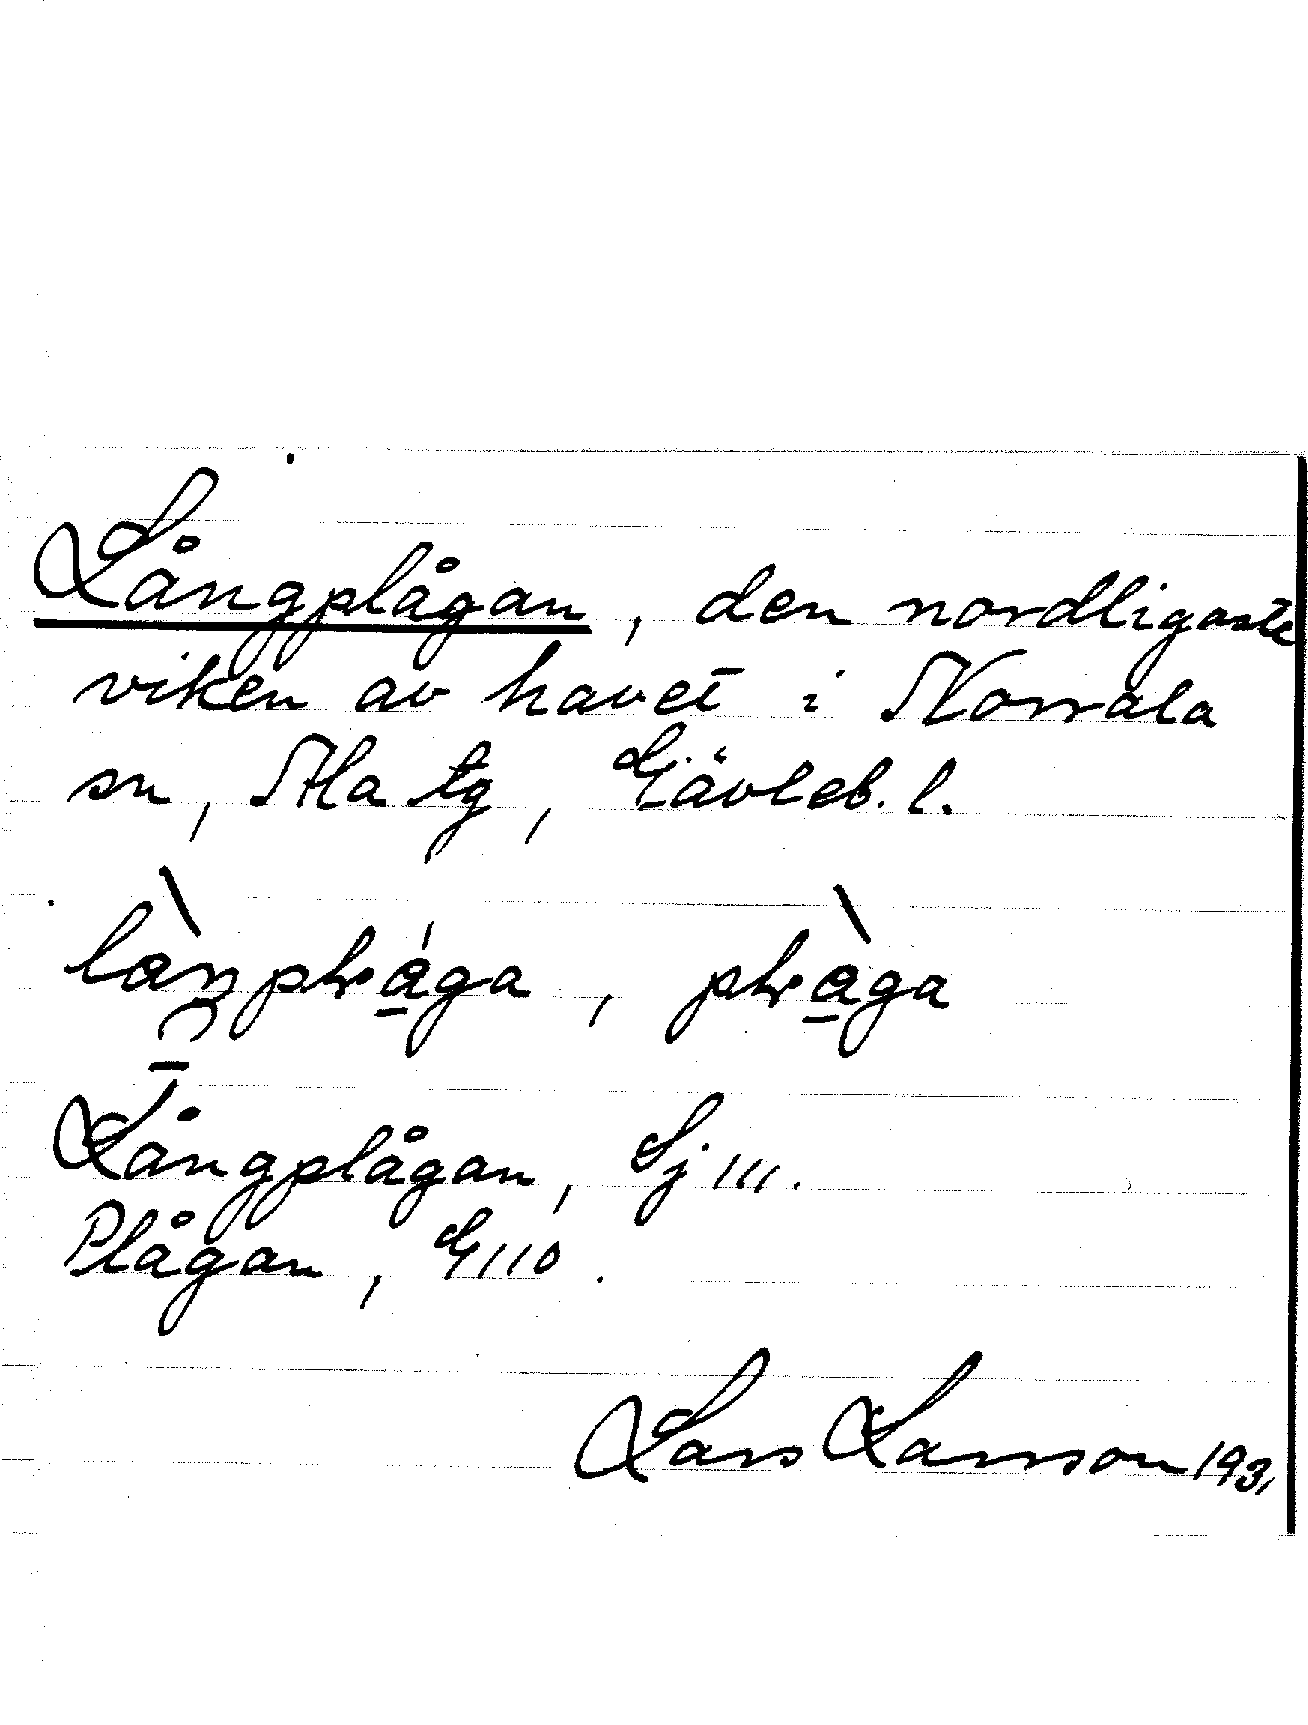 Långplågan, den nordligaste
viken av havet i Norrala
sn, Ala tg, Gävleb. l.
Långplågan, Sj 111.
Plågan, G 110.
Lars Larsson 1931